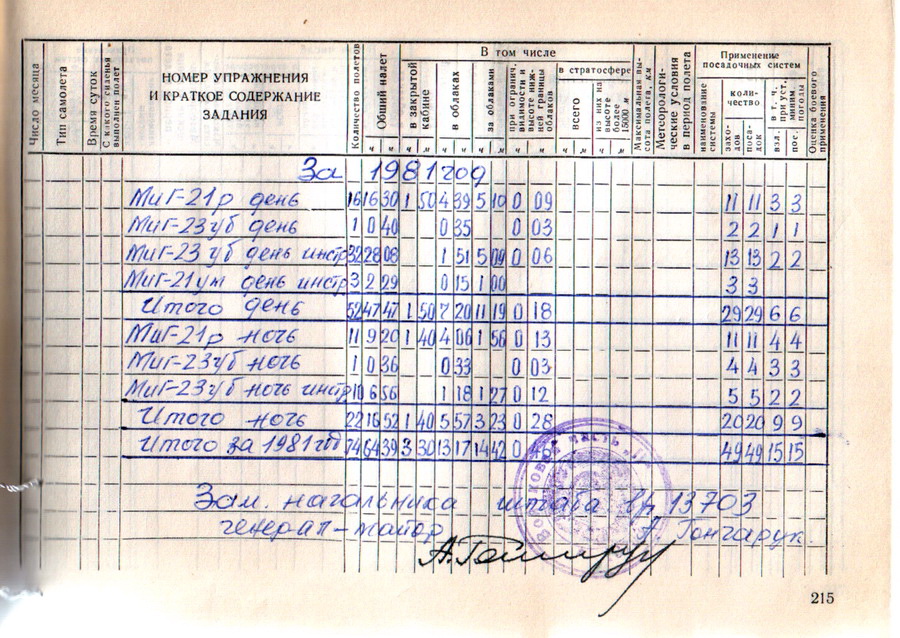 Число месяца
Тип самолета
Время суток
С какого сиденья выполнен полет
НОМЕР УПРАЖНЕНИЯ
И КРАТКОЕ СОДЕРЖАНИЕ
ЗАДАНИЯ
Количество полетов
Общий налет
В том числе
в закрытой кабине
в облаках
за облаками
при огранич. видимости и высоте нижней границы облаков
в стратосфере
всего
из них на высоте более 15000 м
Максимальная высота полета, км
Метеорологические условия в период полета
Применение
посадочных систем
наименование системы
количество
заходов
посадок
в т. ч. при уст. миним. погоды
взл.
пос.
Оценка боевого применения
ч м ч м ч м ч м ч м ч м ч м
За 1981 год
МиГ-21р день 16 16 30 1 50 4 39 5 10 0 09 11 11 3 3
МиГ-23уб день 1 0 40 0 35 0 03 2 2 1 1
МиГ-23уб день инстр 32 28 08 1 51 5 09 0 06 13 13 2 2
МиГ-21ум день инстр 3 2 29 0 15 1 00 3 3
Итого день 52 47 47 1 50 7 20 11 19 0 18 29 29 6 6
МиГ-21р ночь 11 9 20 1 40 4 06 1 56 0 13 11 11 4 4
МиГ-23уб ночь 1 0 36 0 33 0 03 4 4 3 3
МиГ-23уб ночь инстр 10 6 56 1 18 1 27 0 12 5 5 2 2
Итого ночь 22 16 52 1 40 5 57 3 23 0 28 20 20 9 9
Итого за 1981 год 74 64 39 3 30 13 17 14 42 0 46 49 49 15 15
Зам. начальника штаба вч 13703
генерал-майор А. Гончарук.
215